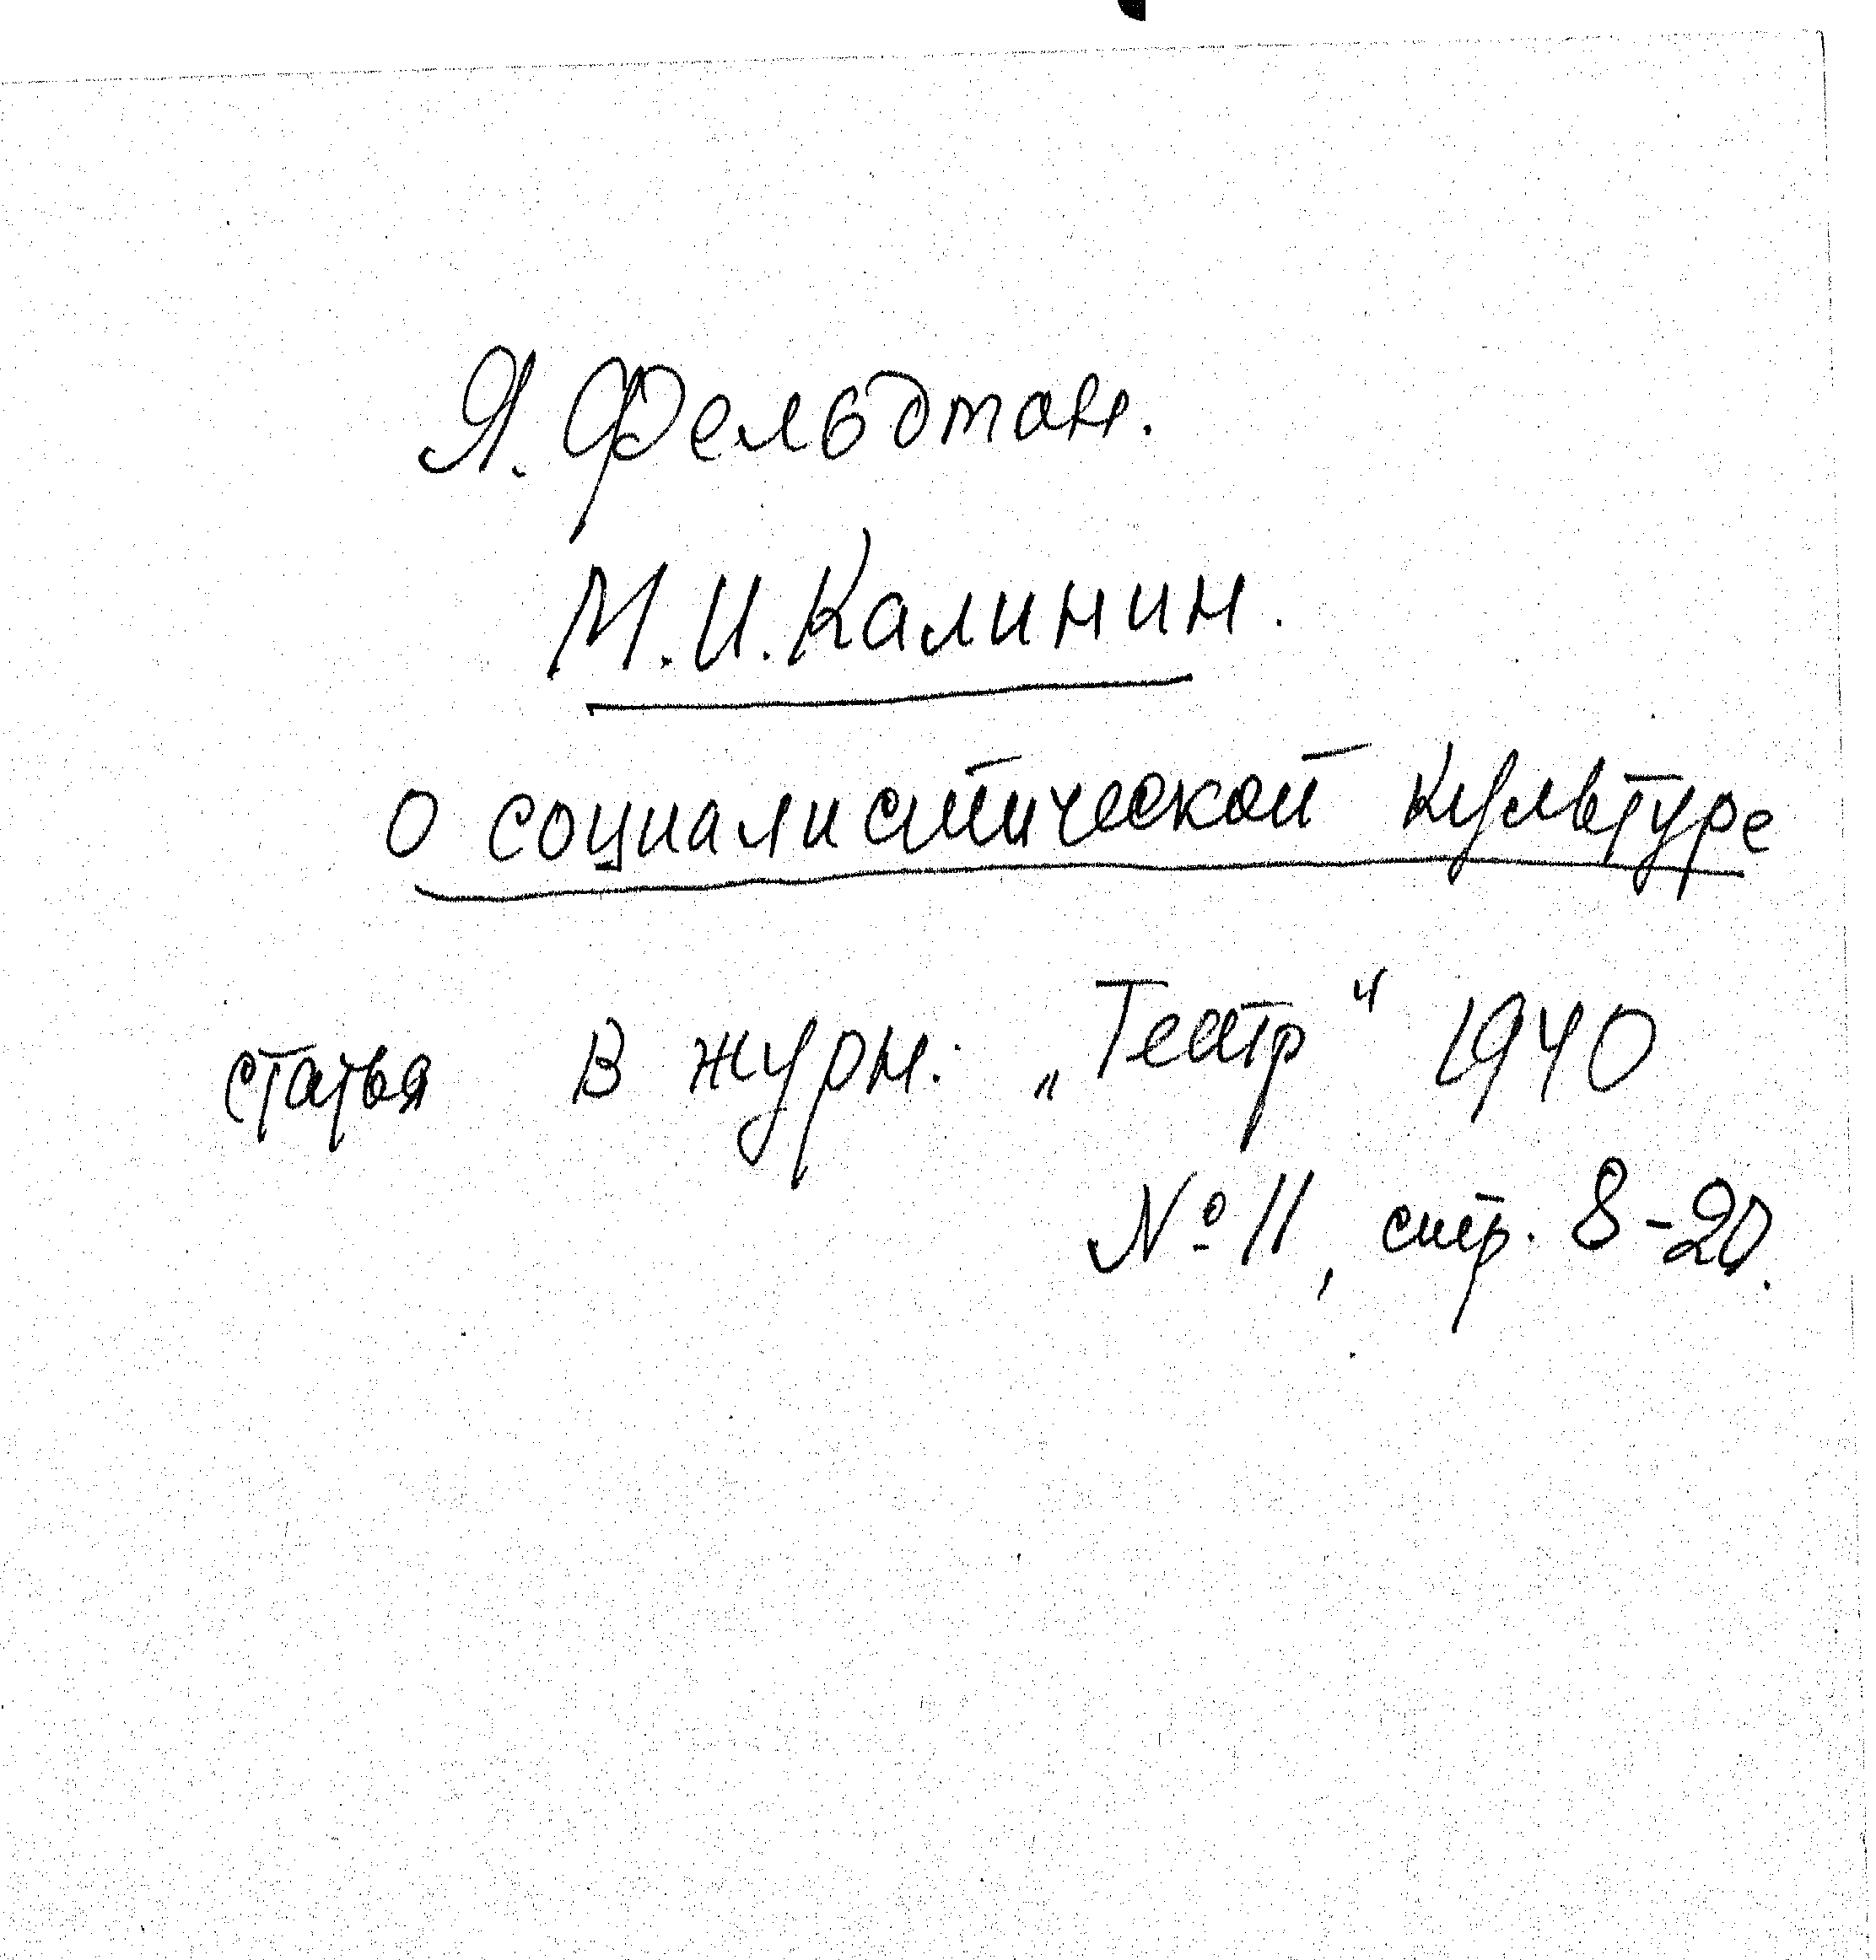 Я. Фельдман.
М.И. Калинин.
О социалистической культуре
статья в журн: „Театр“ 1940
№ 11, стр. 8-20.